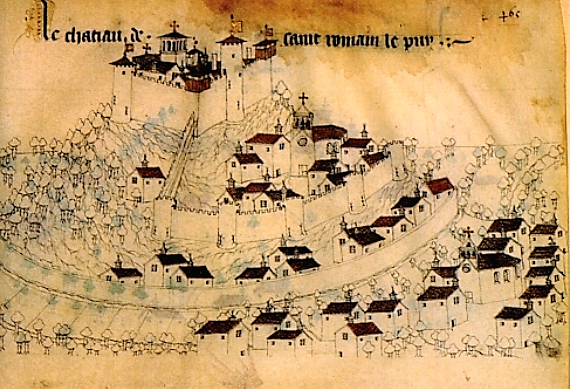 Le chatiau de saint romain le puy